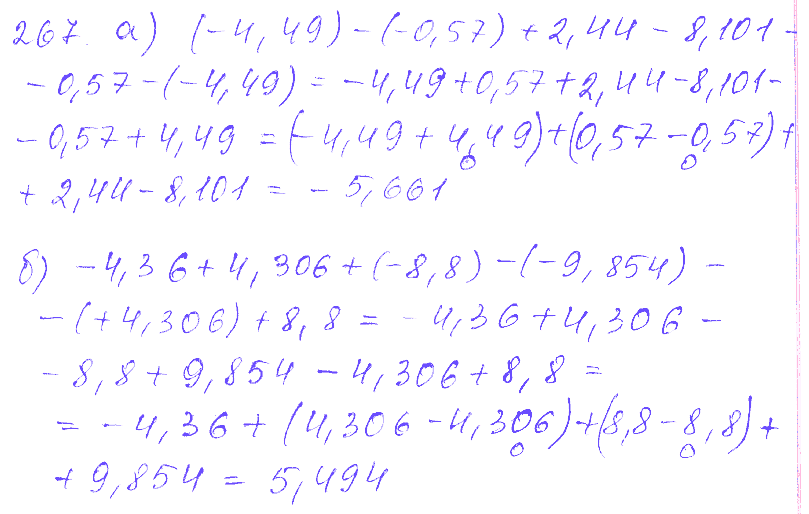 267. а) (-4,49)-(-0,57)+2,44-8,101-
-0,57-(-4,49)=-4,49+0,57+2,44-8,101-
-0,57+4,49=(-4,49+4,49)+(0,57-0,57)+
0 0
+2,44-8,101=-5,661
б) -4,36+4,306+(-8,8)-(-9,854)-
-(+4,306)+8,8=-4,36+4,306-
-8,8+9,854-4,306+8,8=
=-4,36+(4,306-4,306)+(8,8-8,8)+
0 0
+9,854=5,494